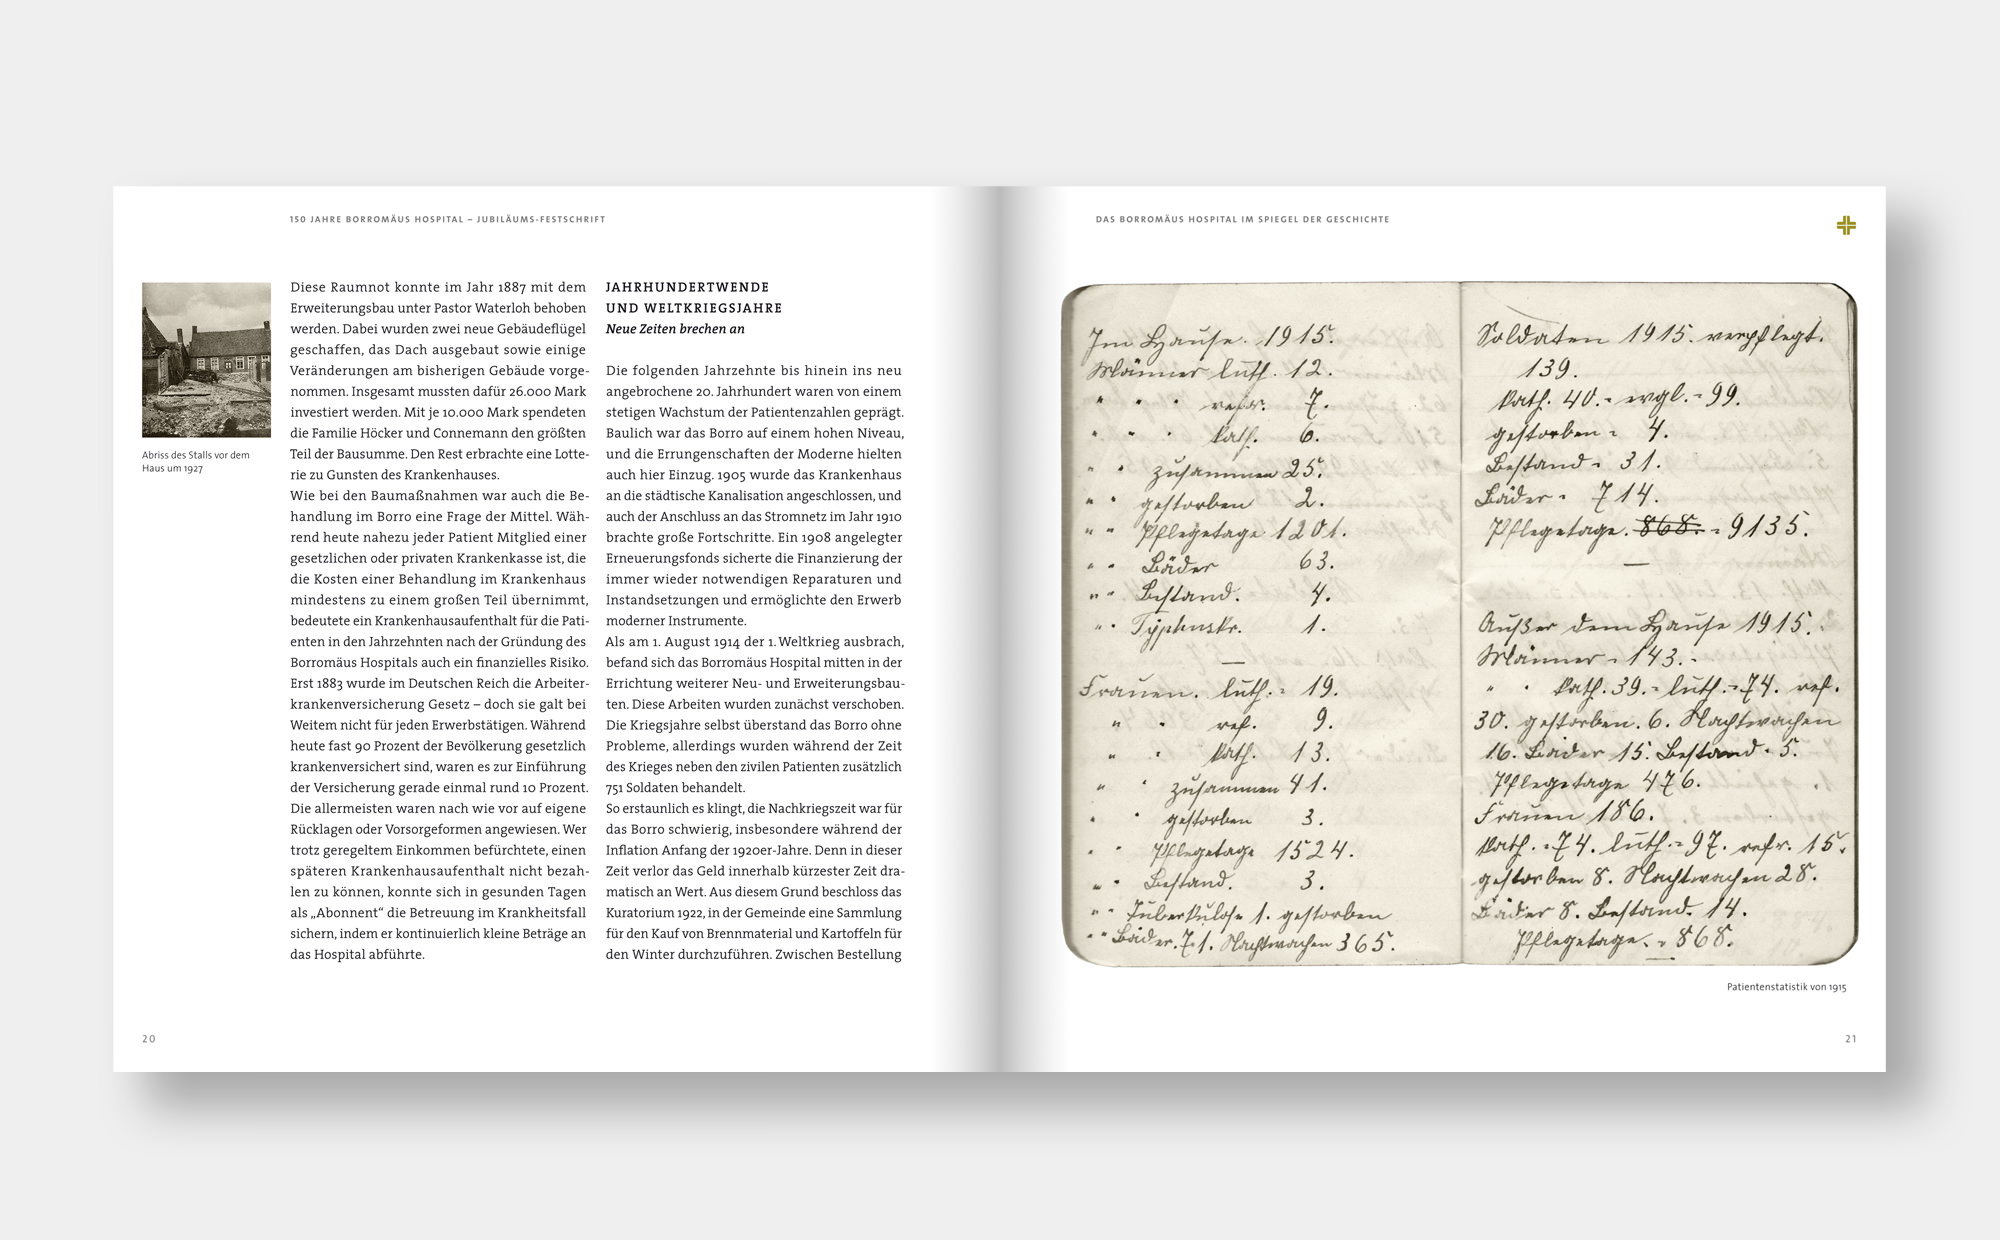 150 JAHRE BORROMÄUS HOSPITAL – JUBILÄUMS-FESTSCHRIFT
Abriss des Stalls vor dem
Haus um 1927
Diese Raumnot konnte im Jahr 1887 mit dem
Erweiterungsbau unter Pastor Waterloh behoben
werden. Dabei wurden zwei neue Gebäudeflügel
geschaffen, das Dach ausgebaut sowie einige
Veränderungen am bisherigen Gebäude vorge-
nommen. Insgesamt mussten dafür 26.000 Mark
investiert werden. Mit je 10.000 Mark spendeten
die Familie Höcker und Connemann den größten
Teil der Bausumme. Den Rest erbrachte eine Lotte-
rie zu Gunsten des Krankenhauses.
Wie bei den Baumaßnahmen war auch die Be-
handlung im Borro eine Frage der Mittel. Wäh-
rend heute nahezu jeder Patient Mitglied einer
gesetzlichen oder privaten Krankenkasse ist, die
die Kosten einer Behandlung im Krankenhaus
mindestens zu einem großen Teil übernimmt,
bedeutete ein Krankenhausaufenthalt für die Pati-
enten in den Jahrzehnten nach der Gründung des
Borromäus Hospitals auch ein finanzielles Risiko.
Erst 1883 wurde im Deutschen Reich die Arbeiter-
krankenversicherung Gesetz – doch sie galt bei
Weitem nicht für jeden Erwerbstätigen. Während
heute fast 90 Prozent der Bevölkerung gesetzlich
krankenversichert sind, waren es zur Einführung
der Versicherung gerade einmal rund 10 Prozent.
Die allermeisten waren nach wie vor auf eigene
Rücklagen oder Vorsorgeformen angewiesen. Wer
trotz geregeltem Einkommen befürchtete, einen
späteren Krankenhausaufenthalt nicht bezah-
len zu können, konnte sich in gesunden Tagen
als „Abonnent“ die Betreuung im Krankheitsfall
sichern, indem er kontinuierlich kleine Beträge an
das Hospital abführte.
JAHRHUNDERTWENDE
UND WELTKRIEGSJAHRE
Neue Zeiten brechen an
Die folgenden Jahrzehnte bis hinein ins neu
angebrochene 20. Jahrhundert waren von einem
stetigen Wachstum der Patientenzahlen geprägt.
Baulich war das Borro auf einem hohen Niveau,
und die Errungenschaften der Moderne hielten
auch hier Einzug. 1905 wurde das Krankenhaus
an die städtische Kanalisation angeschlossen, und
auch der Anschluss an das Stromnetz im Jahr 1910
brachte große Fortschritte. Ein 1908 angelegter
Erneuerungsfonds sicherte die Finanzierung der
immer wieder notwendigen Reparaturen und
Instandsetzungen und ermöglichte den Erwerb
moderner Instrumente.
Als am 1. August 1914 der 1. Weltkrieg ausbrach,
befand sich das Borromäus Hospital mitten in der
Errichtung weiterer Neu- und Erweiterungsbau-
ten. Diese Arbeiten wurden zunächst verschoben.
Die Kriegsjahre selbst überstand das Borro ohne
Probleme, allerdings wurden während der Zeit
des Krieges neben den zivilen Patienten zusätzlich
751 Soldaten behandelt.
So erstaunlich es klingt, die Nachkriegszeit war für
das Borro schwierig, insbesondere während der
Inflation Anfang der 1920er-Jahre. Denn in dieser
Zeit verlor das Geld innerhalb kürzester Zeit dra-
matisch an Wert. Aus diesem Grund beschloss das
Kuratorium 1922, in der Gemeinde eine Sammlung
für den Kauf von Brennmaterial und Kartoffeln für
den Winter durchzuführen. Zwischen Bestellung
20
DAS BORROMÄUS HOSPITAL IM SPIEGEL DER GESCHICHTE
Im Hause. 1915.
Männer luth. 12.
" " " refor. 7.
" " " kath. 6.
" " zusammen 25.
" " gestorben 2.
" " Pflegetage 1201.
" " Bäder 63.
" " Bestand. 4.
" " Typhuskr. 1.
—
Frauen. luth. = 19.
" " ref. 9.
" " kath. 13.
" " zusammen 41.
" " gestorben 3.
" " Pflegetage 1524.
" " Bestand. 3.
" " Tuberkulose 1. gestorben
" " Bäder. 71. Nachtwachen 365.
Soldaten 1915. verpflegt.
139.
kath. 40. = evgl. = 99.
gestorben = 4.
Bestand = 31.
Bäder = 714.
Pflegetage. 868. = 9135.
—
Außer dem Hause 1915.
Männer = 143. -
" " kath. 39. = luth. = 74. ref.
30. gestorben. 6. Nachtwachen
16. Bäder 15. Bestand = 5.
Pflegetage 476.
Frauen 186.
kath. = 74. luth. = 97. refr. 15.
gestorben 8. Nachtwachen 28.
Bäder 8. Bestand. 14.
Pflegetage. = 868.
—
Patientenstatistik von 1915
21